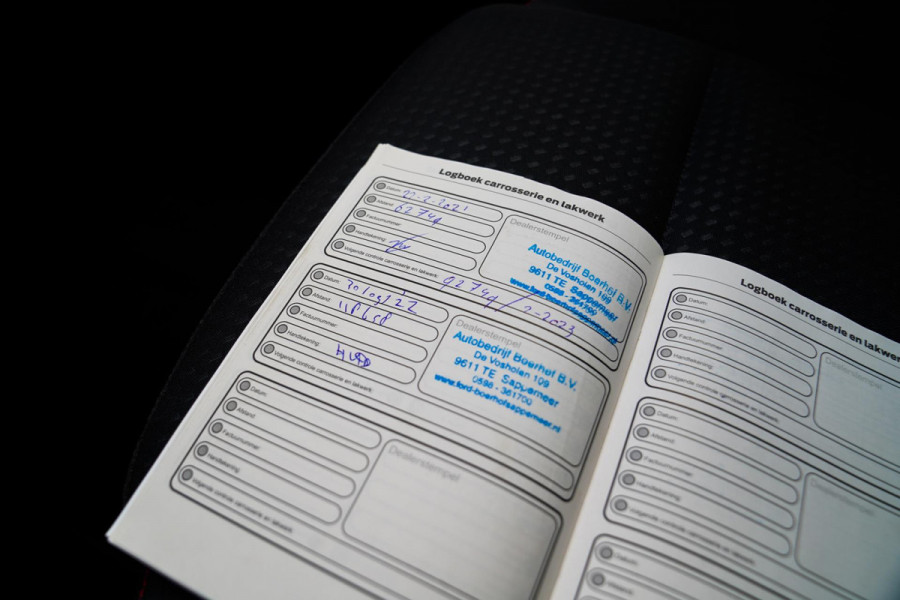 Logboek carrosserie en lakwerk
Datum:
Afstand: 62744
Factuurnummer:
Handtekening:
Volgende controle carrosserie en lakwerk: 92744 / 2-2023
Dealerstempel
Autobedrijf Boerhof B.V.
De Vosholen 109
9611 TE Sappemeer
0598 - 361700
www.ford-boerhofsappemeer.nl
Datum: 20/05/22
Afstand:
Factuurnummer:
Handtekening:
Volgende controle carrosserie en lakwerk:
Dealerstempel
Autobedrijf Boerhof B.V.
De Vosholen 109
9611 TE Sappemeer
0598 - 361700
www.ford-boerhofsappemeer.nl
Datum:
Afstand:
Factuurnummer:
Handtekening:
Volgende controle carrosserie en lakwerk:
Dealerstempel
Logboek carrosserie en lakwerk
Datum:
Afstand:
Factuurnummer:
Handtekening:
Volgende controle carrosserie en lakwerk:
Dealerstempel
Datum:
Afstand:
Factuurnummer:
Handtekening:
Volgende controle carrosserie en lakwerk:
Dealerstempel
Datum:
Afstand: